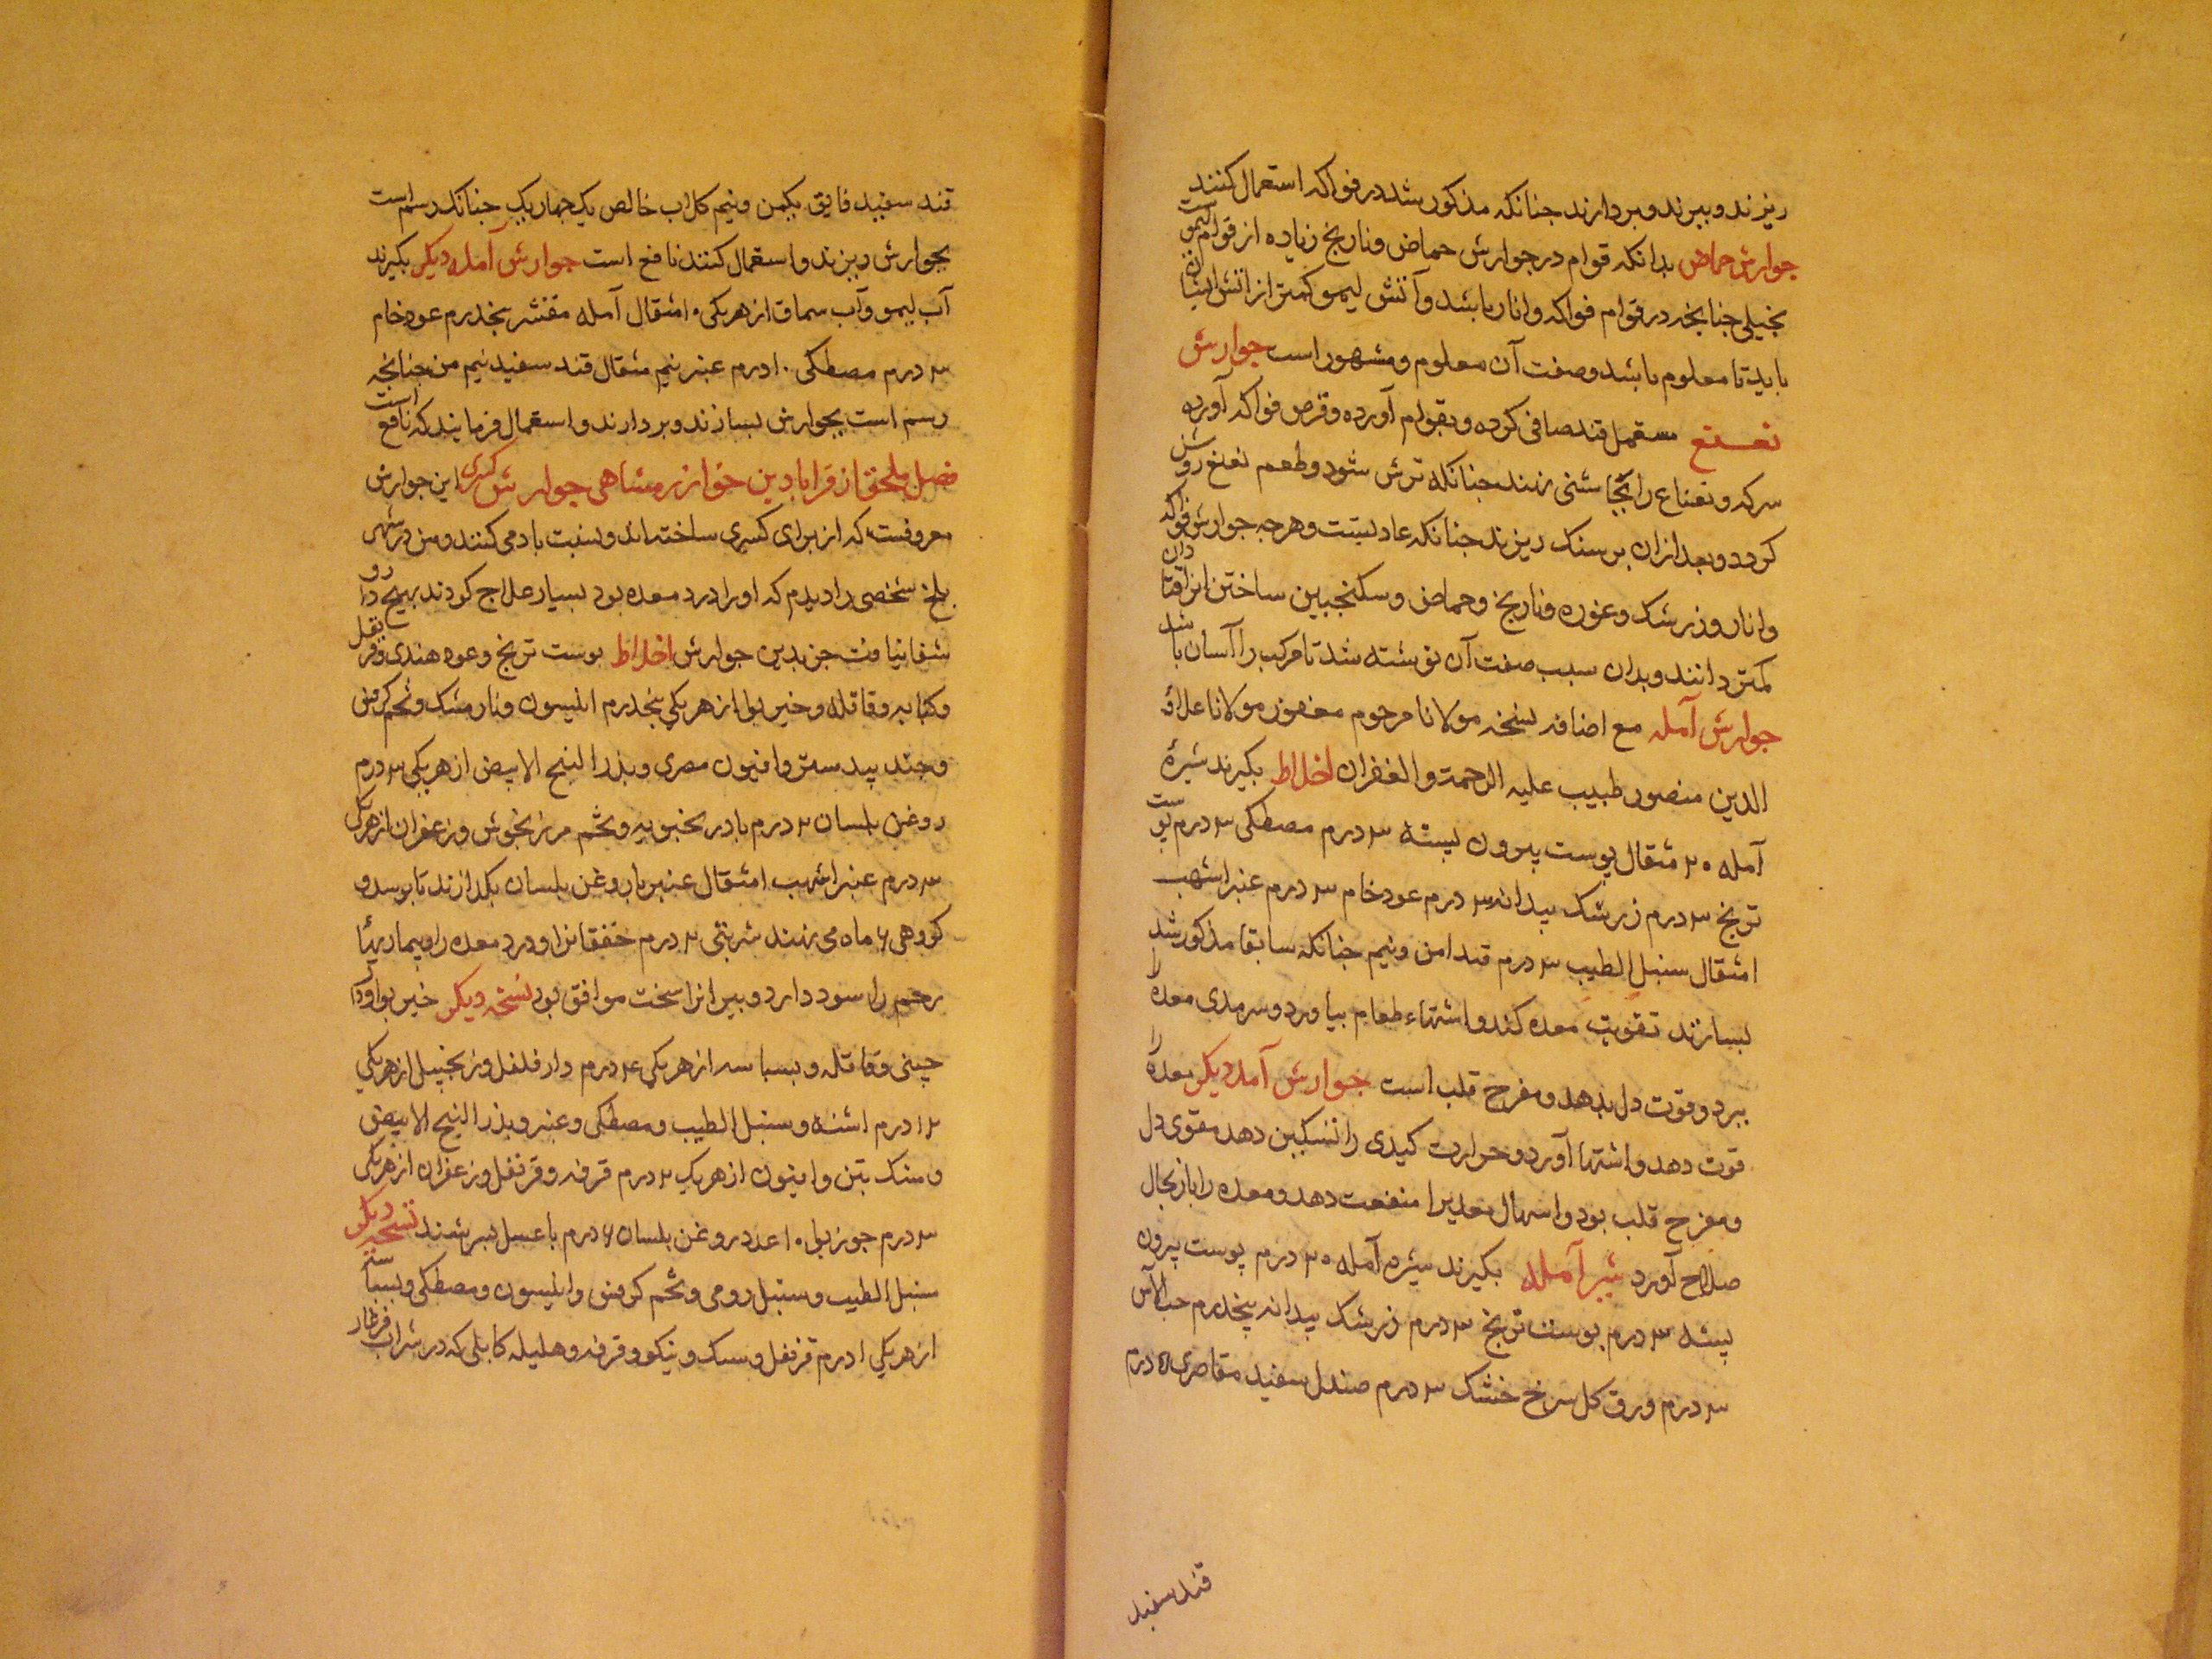 ریزند و ببرند و بردارند جنانکه مذکور شد در فواکه استعمال کنند
جوارش حماض بدانکه قوام در جوارش حماض و نارنج زیاده از قوام لیموست
بخیلی جنانجه در قوام فواکه و انار باشد و آتش لیمو کمتر از آتش ایشان
باید تا معلوم باشد و صفت آن معلوم و مشهور است جوارش
نعنع مستعمل قند صافی کرده و بقوام آورده و قرص فواکه آورده
سرکه و نعناع را بجاشنی زنند جنانکه ترش شود و طعم نعنع روشن
کردد و بعد ازان بر سنک ریزند جنانکه عادتست و هرجه جوارش فواکه
و انار و زرشک و غوره و نارنج و حماض و سکنجبین ساختن
کمتر دانند و بدان سبب صفت آن نوشته شد تا مرکب را آسان باشد
جوارش آمله مع اضافه نسخه مولانا مرحوم مغفور مولانا علاؤ
الدین منصور طبیب علیه الرحمة و الغفران اخلاط بکیرند شیرهٔ
آمله ۲۰ مثقال پوست بیرون پسته ۳ درم مصطکی ۳ درم پوست
ترنج ۳ درم زرشک بیدانه ۳ درم عود خام ۳ درم عنبر اشهب
۱ مثقال سنبل الطیب ۳ درم قند ۱ من و نیم جنانکه سابقا مذکور شد
بسازند تقویت معده کند و اشتهاء طعام بیاورد و سرمدی معده را
ببرد و قوت دل بدهد و مفرح قلب است جوارش آمله دیکر معده را
قوت دهد و اشتها آورد و حرارت کبدی را تسکین دهد مقوی دل
و مفرح قلب بود و اسهال معدیرا منفعت دهد و معده را باز بحال
صلاح آورد شیر آمله بکیرند شیره آمله ۲۰ درم پوست بیرون
پسته ۳ درم پوست ترنج ۳ درم زرشک بیدانه پنجدرم حب الآس
۳ درم ورق کل سرخ خشک ۳ درم صندل سفید مقاصری ۵ درم
قند سفید
قند سفید فایق یکمن و نیم کلاب خالص یک جهار یک جنانک رسم است
بجوارش ریزند و استعمال کنند نافع است جوارش آمله دیکر بکیرند
آب لیمو و آب سماق از هر یکی ۱۰ مثقال آمله مقشر پنجدرم عود خام
۳ درم مصطکی ۱۰ درم عنبر نیم مثقال قند سفید نیم من جنانجه
رسم است بجوارش بسازند و بردارند و استعمال فرمایند که نافع است
فصل ملحق از قرابادین خوارزمشاهی جوارش کسری این جوارش
معروفست که از برای کسری ساخته اند و نسبت باو می کنند و من در شهر
بلخ شخصی را دیدم که اورا درد معده بود بسیار علاج کردند بهیج دارو
شفا نیافت جز بدین جوارش اخلاط پوست ترنج و عود هندی و قرنفل
و کبابه و قاقله و خیر بوا از هر یکی پنجدرم انیسون و نارمشک و تخم کرفس
و جند بیدستر و افیون مصری و بذر البنج الابیض از هر یکی ۳ درم
روغن بلسان ۲ درم بادرنجبویه و تخم مرزنجوش و زعفران از هر یکی
۳ درم عنبر اشهب ۱ مثقال عنبر با روغن بلسان بکدازند
کروهی ۶ ماه می نهند شربتی ۲ درم خفقانرا و درد معده را و بیماریهای
رحم را سود دارد و بیرانرا سخت موافق بود نسخه دیکر خیر بوا و دار
چینی و قاقله و بسباسه از هر یکی ۴ درم دار فلفل و زنجبیل از هر یکی
۱۲ درم اشنه و سنبل الطیب و مصطکی و عنبر و بذر البنج الابیض
و مشک تبتی و افیون از هر یک ۲ درم قرفه و قرنفل و زعفران از هر یکی
۳ درم جوز بوا ۱۰ عدد روغن بلسان ۶ درم با عسل بسرشند نسخه دیکر
سنبل الطیب و سنبل رومی و تخم کرفس و انیسون و مصطکی و بسباسه
از هر یکی ۱ درم قرنفل و سک و نیکو و قرفه و هلیله کابلی که در شراب